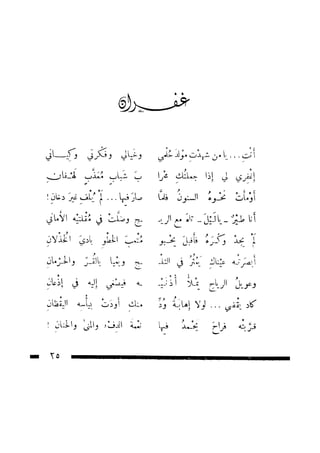 غفران
أنتِ... يا من شهدتِ مولدَ حُلمي وخيالي وفكرتي وكياني
إغفِري لي إذا جعلتُكِ عمرا بَ شبابٍ مُعذَّبٍ
أوْمأتْ نحوهُ السنونُ فلمَّا صارَ فيها... لمْ يُلْفِ غيرَ دخانِ!
أنا طيرٌ ـ ياليلَ ـ تاهَ مع الريـ ـحِ وضلَّتْ في مُقلتيْهِ الأماني
لمْ يجدْ وكْرَهُ فأقبلَ يخبو مُتْعبَ الخَطْوِ باديَ الخُذلانِ
أبصرَتْهُ عيناكِ يَعْثُرُ في الثلـ ـجِ ويحيا بالقُرِّ والحِرْمانِ
وعويلُ الرياحِ يملأُ أُذنَيْـ ـهِ فيُصْغي إليهِ في إذْعانِ
كادَ يقْضي... لولا إهابةُ وُدٍّ منكِ أودَتْ بيأْسهِ اليقْظانِ
قرَّبتْهُ فراحَ يحْمدُ فيها نعْمةَ الدفءِ والمنى والحنانِ!
٢٥